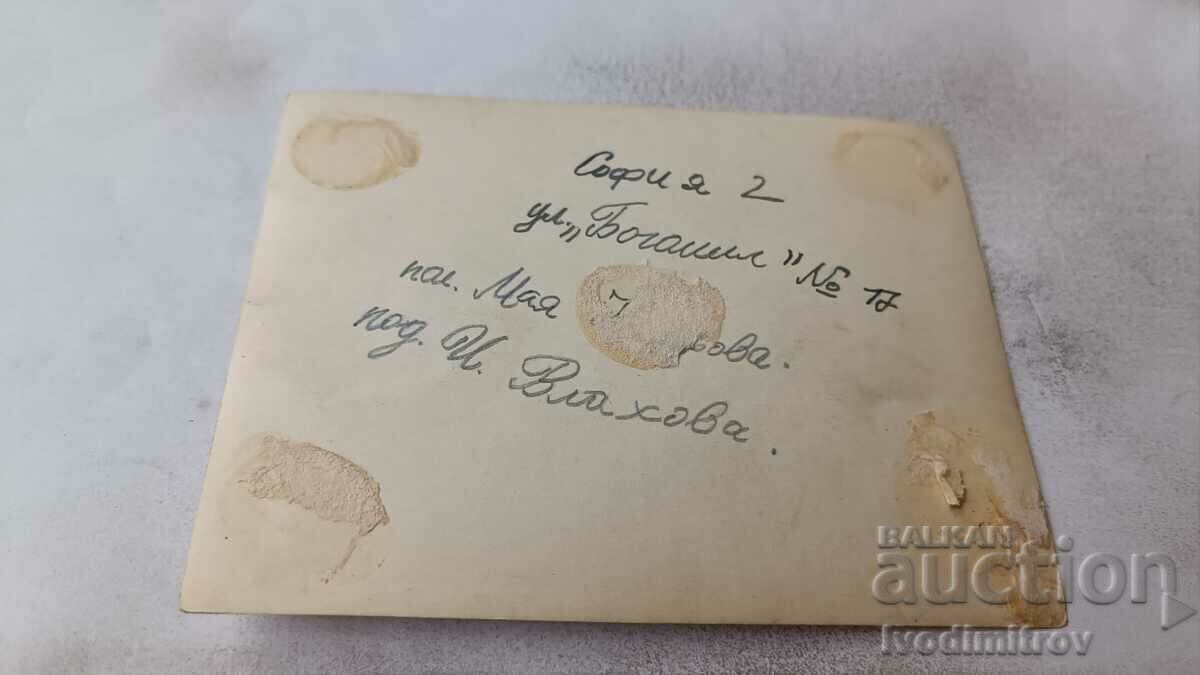 София 2
ул. „Богомил" № 17
пол. Мая
под. И. Влахова.
BALKAN
auction
Ivodimitrov